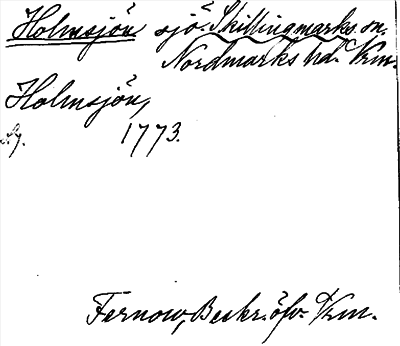 Holmsjön sjö. Skillingmarks sn.
Nordmarks hd. Vrm.
Holmsjön,
1773.
Fernow, Beskr. öfv. Vrm.